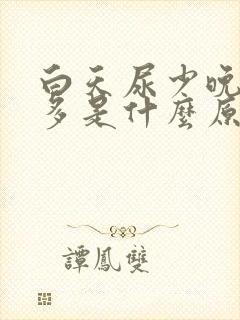 白天尿少晚
多是什麼原
譚鳳雙